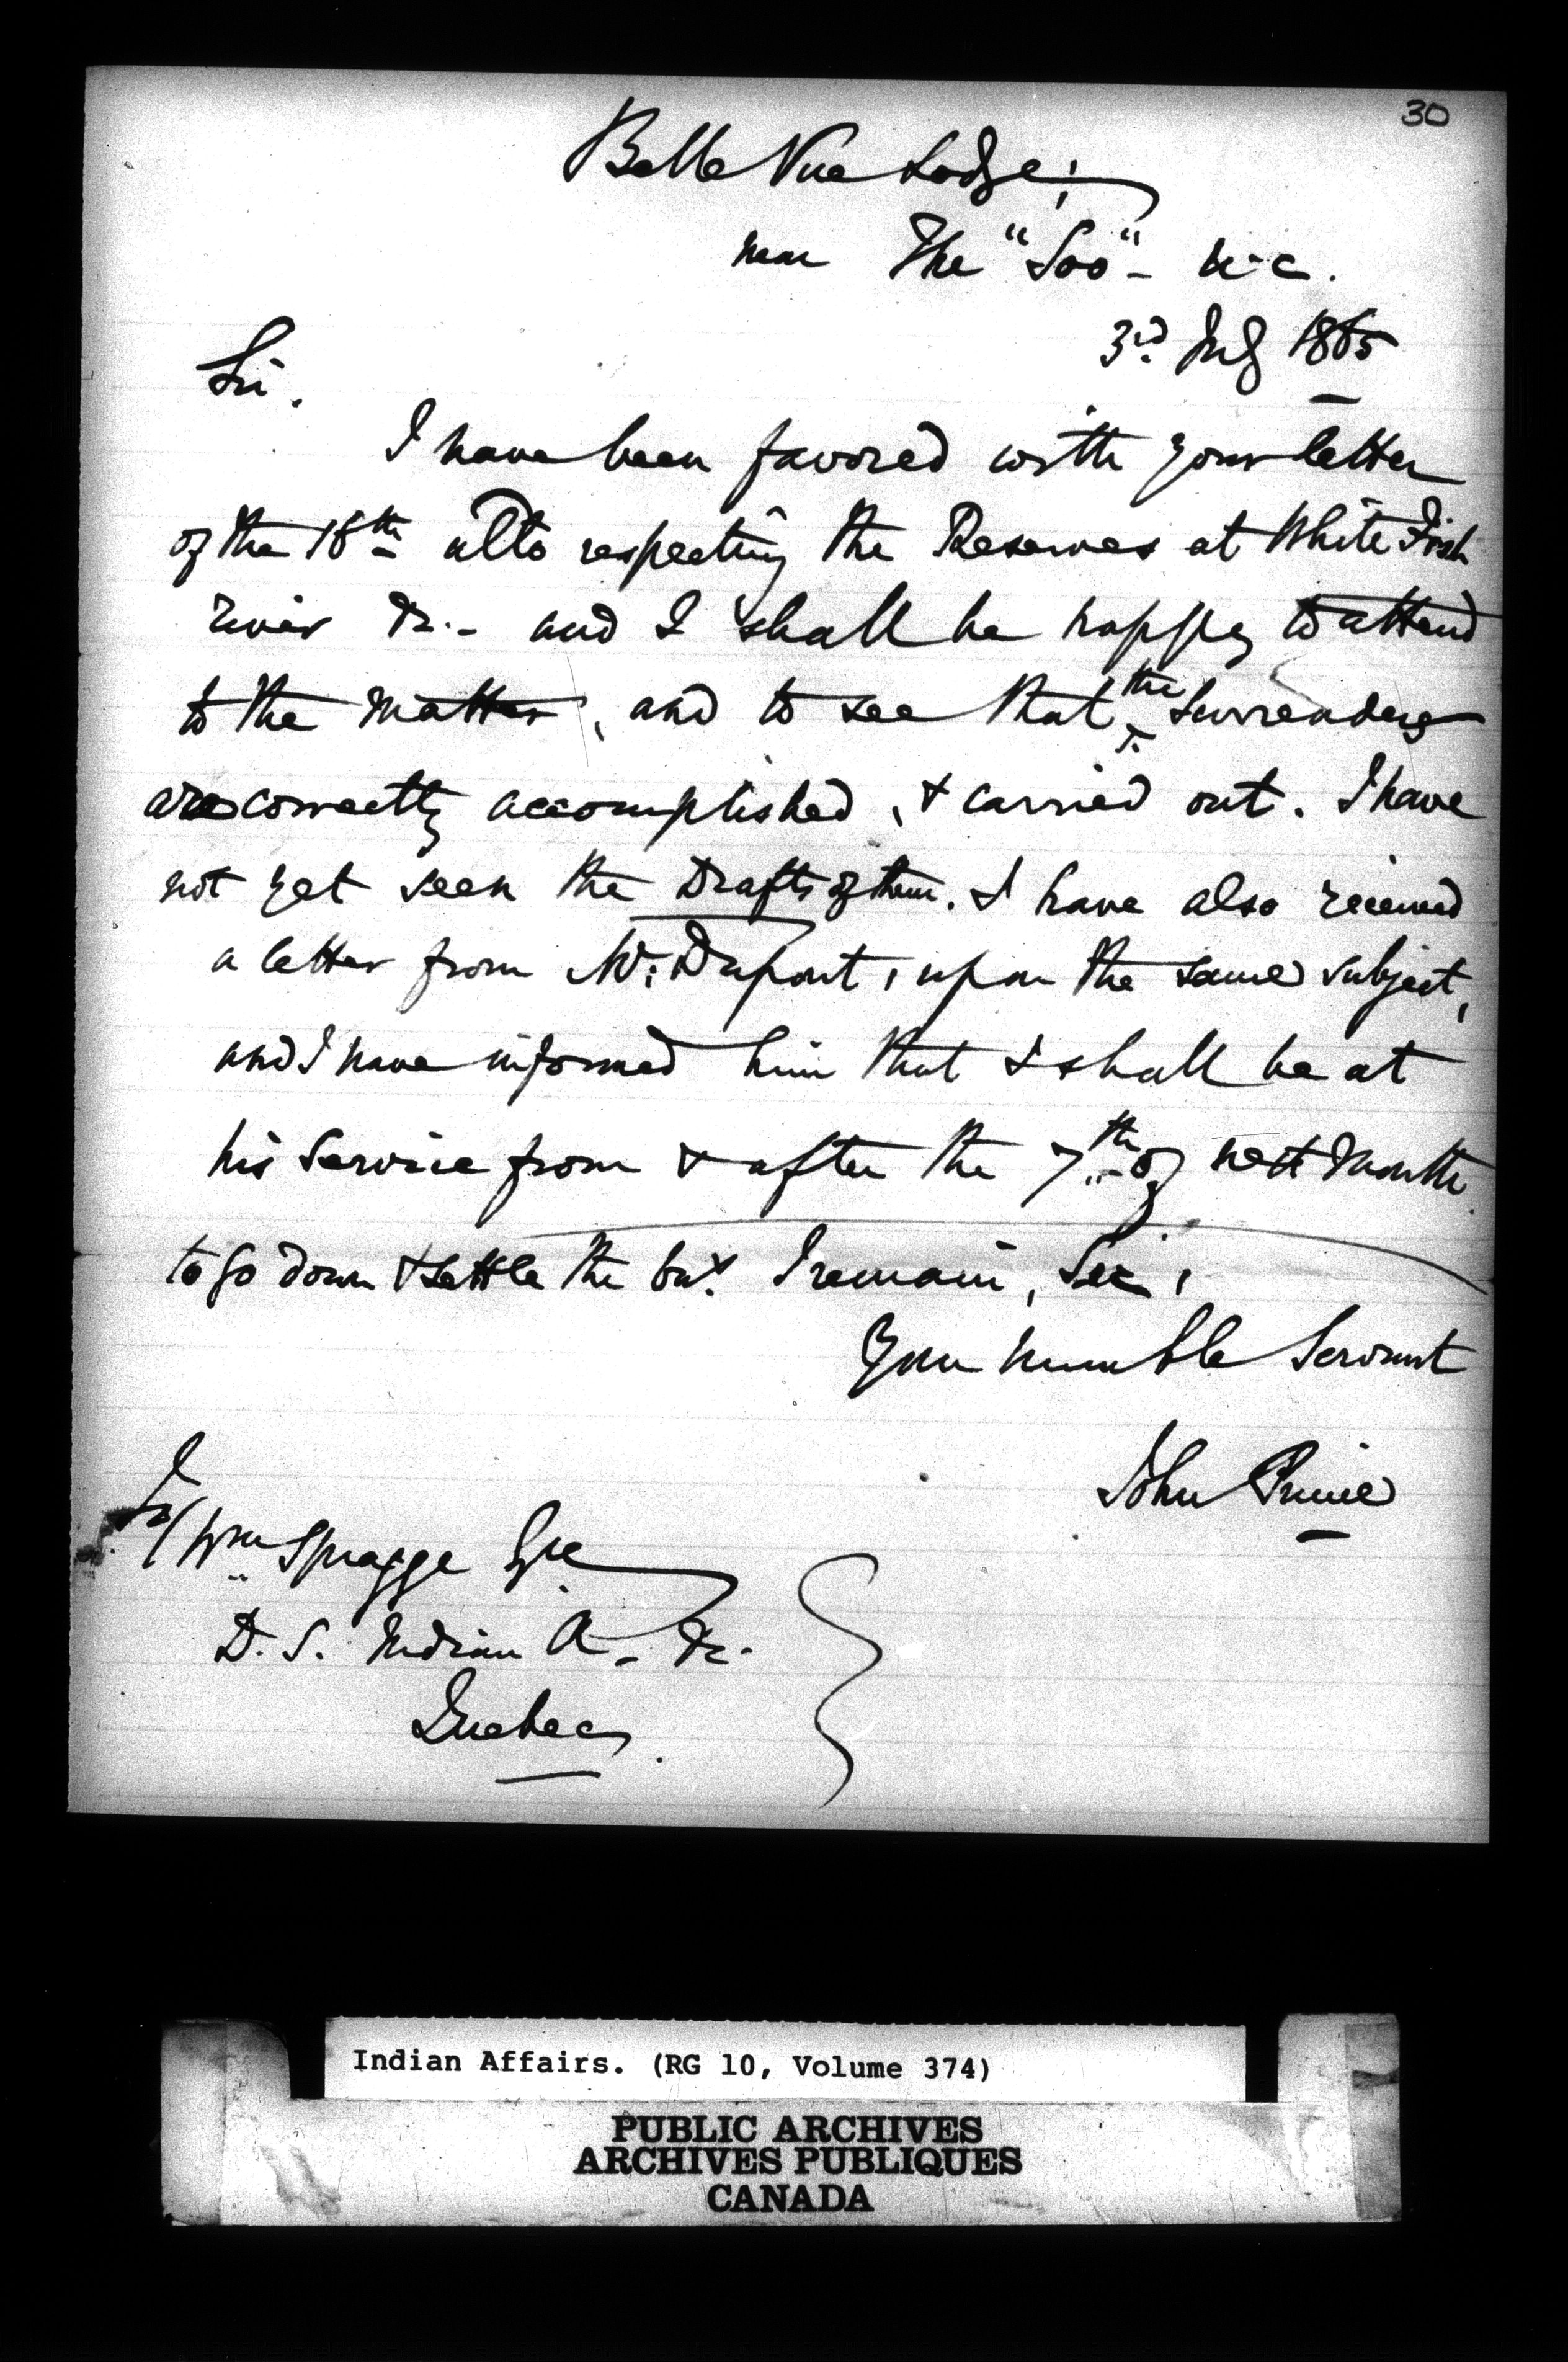 30
Belle Vue Lodge;
near The "Soo" - U-C.
3rd July 1865
Sir.
I have been favored with your letter
of the 18th ulto respecting the Reserves at White Fish
river &c. - and I shall be happy to attend
to the matter, and to see that the Surrenders
are correctly accomplished, & carried out. I have
not yet seen the Drafts of them. I have also received
a letter from Mr. Dupont, upon the same subject,
and I have informed him that I shall be at
his Service from & after the 7th of next Month
to go down & settle the bus. I remain, Sir,
Your humble Servant
John Prince
To/ Wm Spragge Esqe
D. S. Indian A - &c.
Quebec.
Indian Affairs. (RG 10, Volume 374)
PUBLIC ARCHIVES
ARCHIVES PUBLIQUES
CANADA